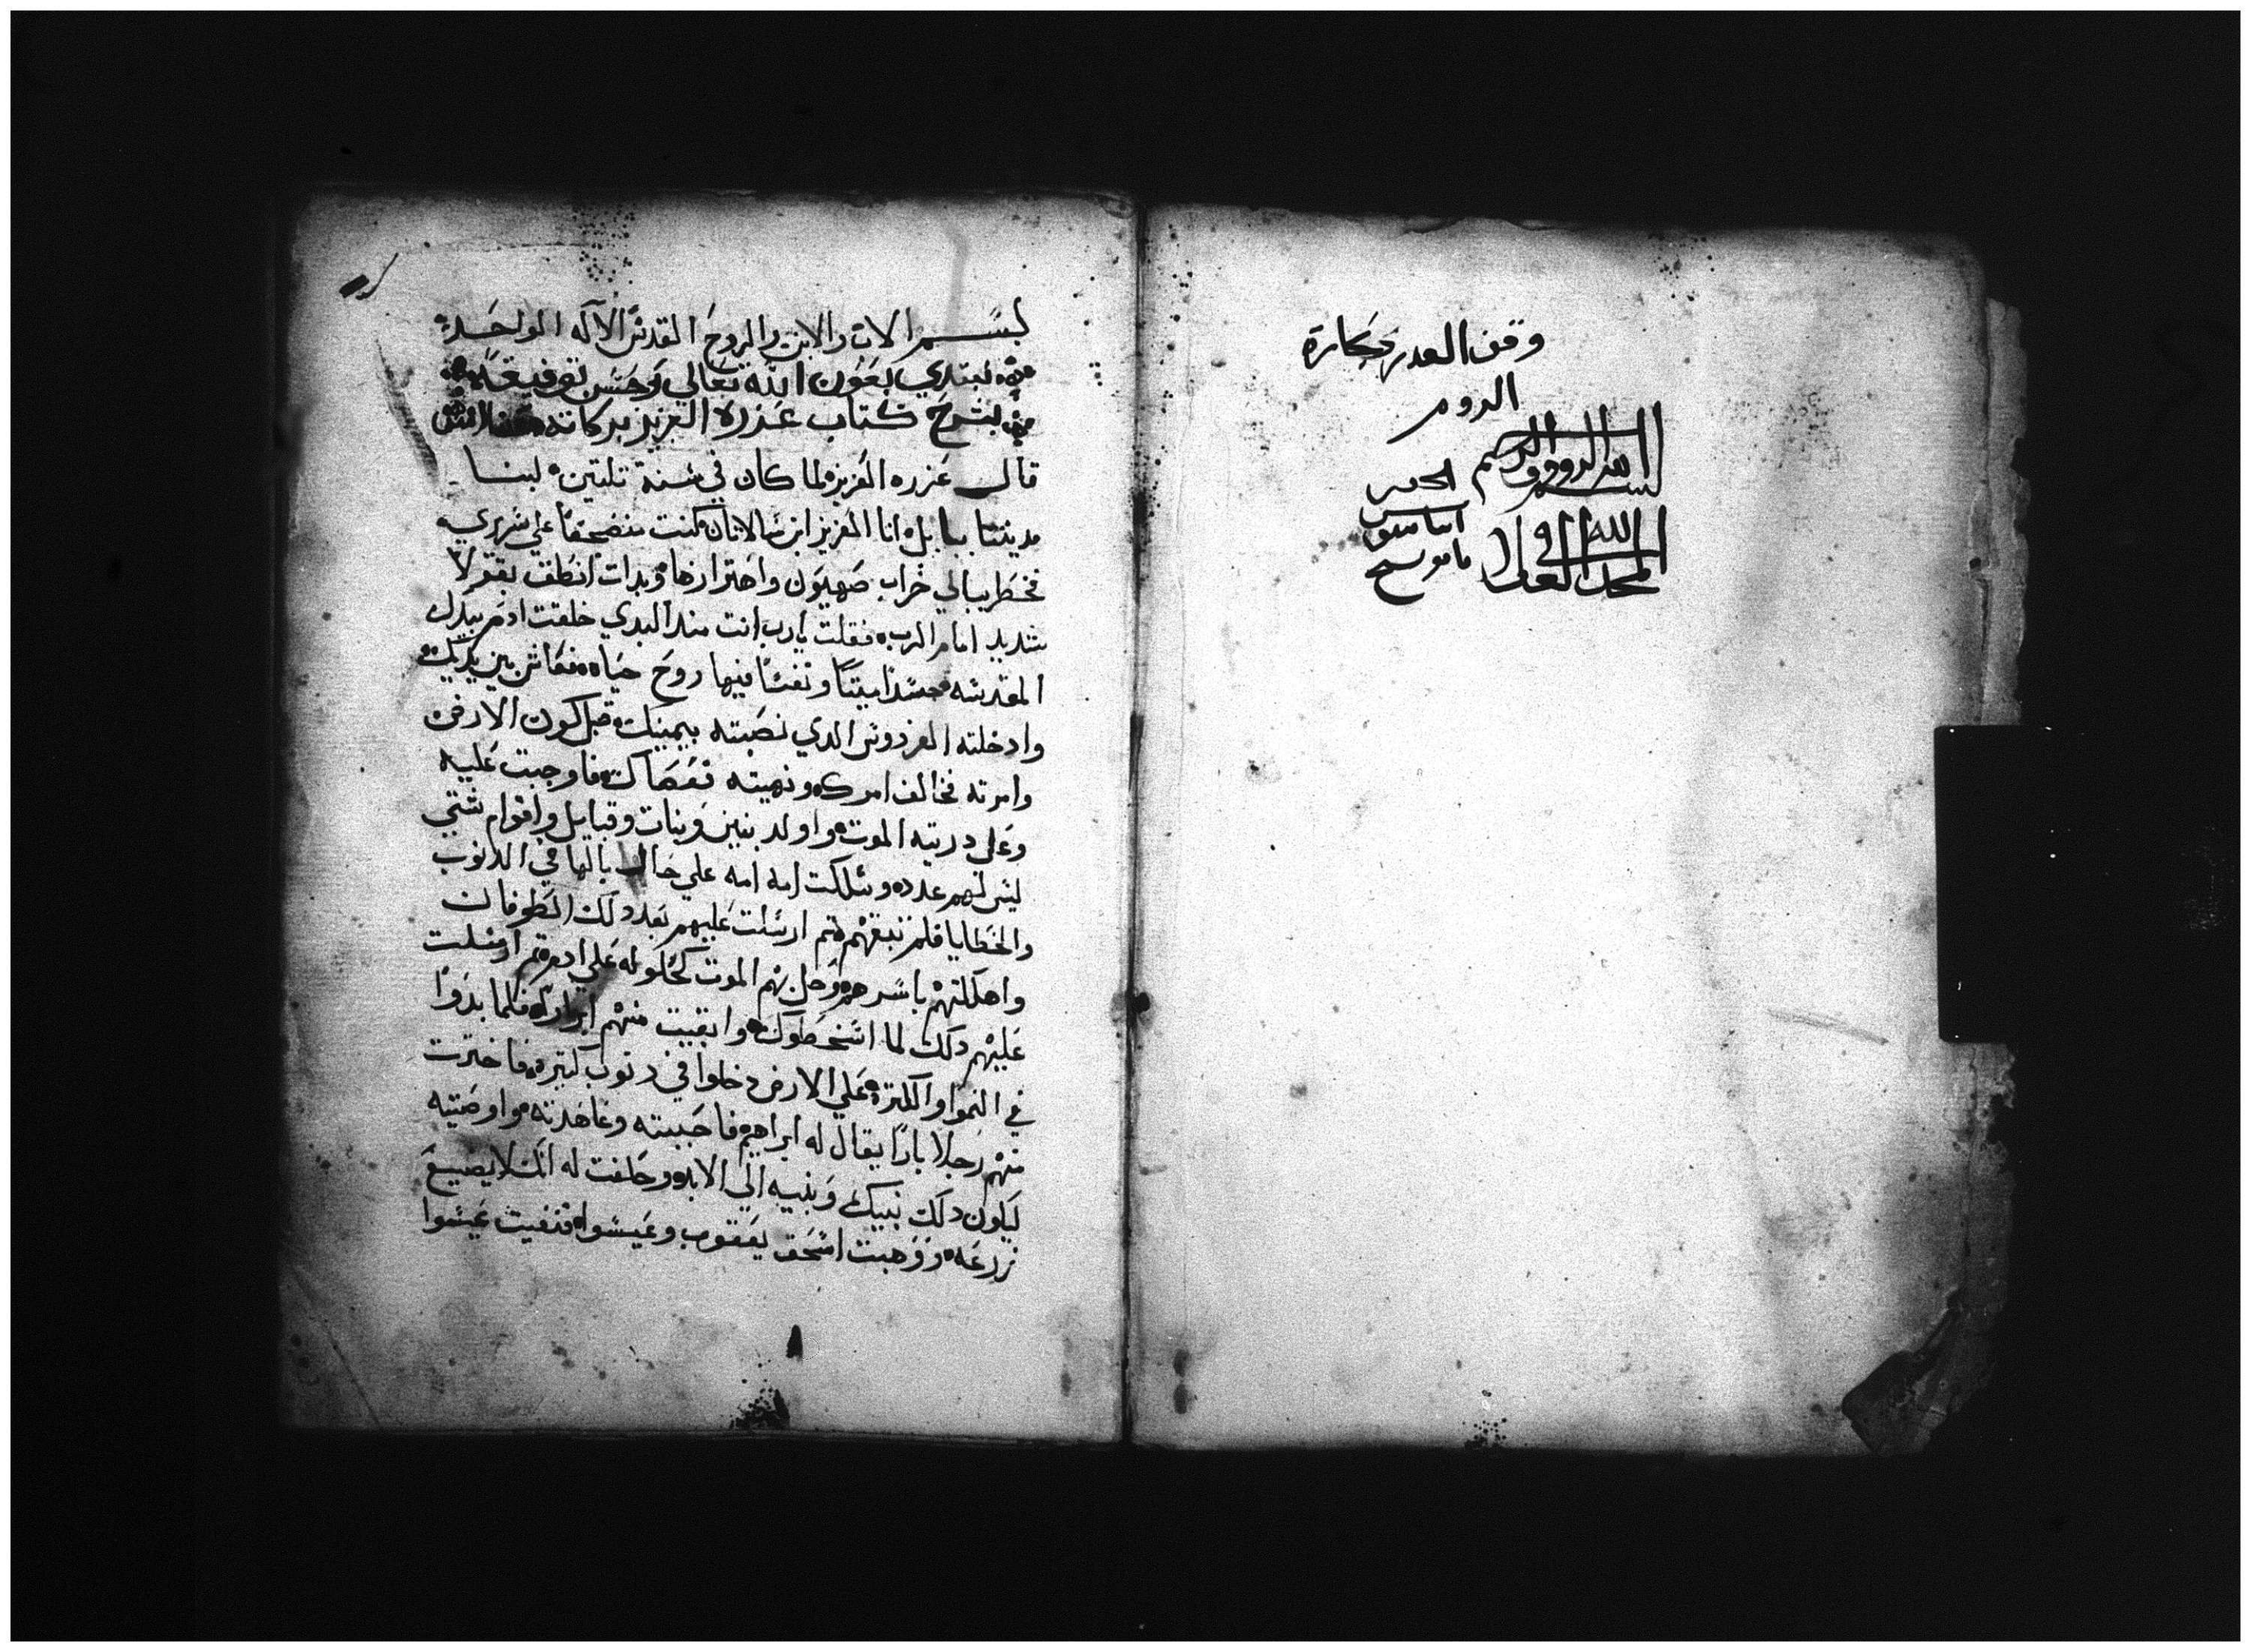 وقف العدر بحكارة
الروم
بسم الله الرووف الرحيم
المجد لله في العلا
بسم الاب والابن والروح القدس الاله الواحد
نبتدي بعون الله تعالي وحسن توفيقه
بشرح كتاب عزره العزيز بركاته
قال عزره العزيز لما كان في سنة تلتين لبنا
مدينتنا ببابل انا العزيز ابن شالاتان كنت منضجعًا علي سريري
فخطر ببالي خراب صهيون واهتزازها وبدات انطق بقولًا
شديد امام الرب فقلت يارب انت مند البدي خلقت ادم بيدك
المقدسه جسدًا ميتًا ونفثتا فيها روح حياه فعاش بين يديك
وادخلته الفردوس الدي نصبته بيمينك قبل كون الارض
وامرته فخالف امرك ونهيته فعصاك فاوجبت عليه
وعلي دريته الموت واولد بنين وبنات وقبايل واقوام شتي
ليس لهم عدد وسلكت امه امه علي حال بالها في الدنوب
والخطايا فلم تبقهم تم ارسلت عليهم بعد دلك الطوفان
واهلكتهم باسرهم وحل بهم الموت كحلوله علي ادم تم ارسلت
عليهم دلك لما اسخطوك وابقيت منهم ابرارًا فلما بدوا
في النموا والكترة علي الارض دخلوا في دنوب كتيره فاخترت
منهم رجلًا بارًا يقال له ابراهيم فاحببته وعاهدته واوصيته
ليكون دلك نبيك وبنيه الي الابد وحلفت له انك لا يضيع
زرعه ووهبت اسحق يعقوب وعيسوا فنفيت عيسوا